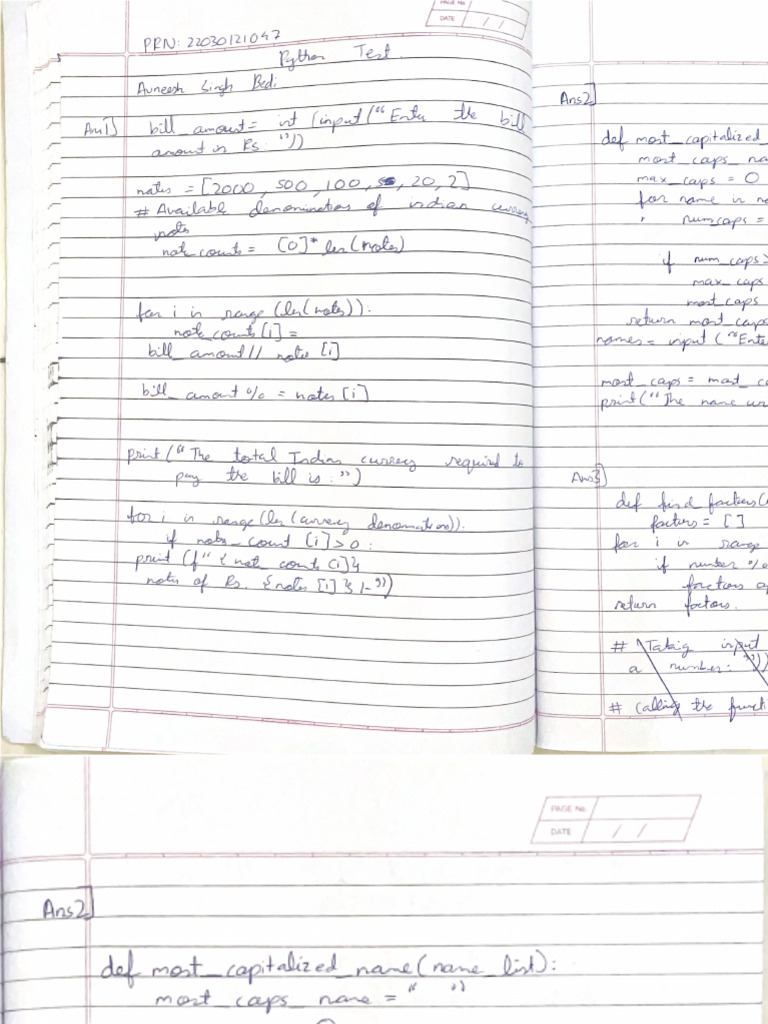 PAGE No.
DATE / /
PRN: 22030121047
Python Test
Avneesh Singh Bedi
Ans1]
bill_amount = int (input("Enter the bill
amount in Rs : "))
notes = [2000, 500, 100, 20, 2]
# Available denomination of indian currency
notes
note_counts = [0]* len(notes)
for i in range (len(notes)):
note_counts [i] =
bill_amount // notes [i]
bill_amount % = notes [i]
print ("The total Indian currency required to
pay the bill is : ")
for i in range(len(currency denomination)):
if note_count [i] > 0 :
print (f" { note_counts [i] }
notes of Rs. {notes [i] } /- ")
Ans2]
def most_capitalized_
most_caps_na
max_caps = 0
for name in na
numcaps =
if num_caps >
max_caps
most_caps
return most_caps
names = input ("Ente
most_caps = most_ca
print("The name w
Ans3]
def find factors(
factors = [ ]
for i in range
if number %
factors
return factors.
# Taking input
a number: "))
# Calling the funct
PAGE No.
DATE / /
Ans2]
def most_capitalized_name(name_list):
most_caps_name = " "